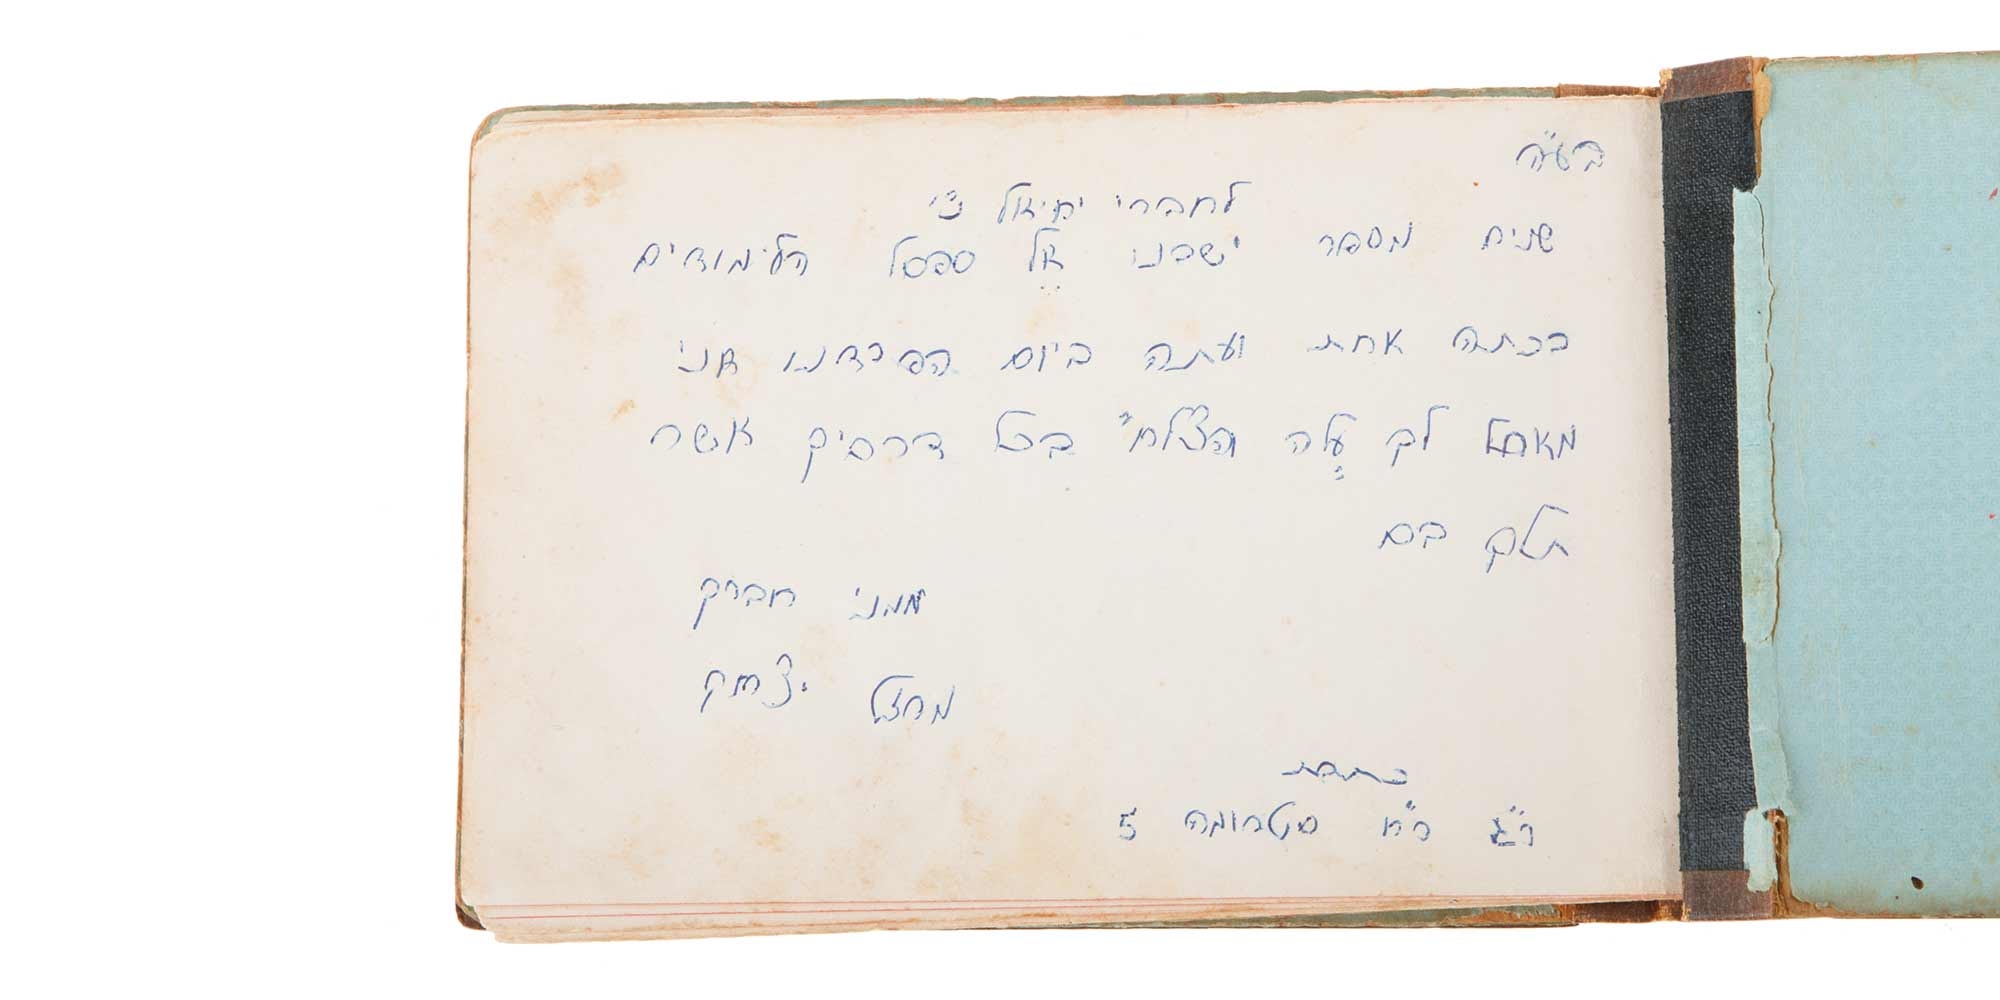 בע"ה
לחברי יחיאל נ"י
שנים מספר ישבנו אל ספסל הלימודים
בכתה אחת ועתה ביום הפרדנו אני
מאחל לך עלה והצלח" בכל דרכיך אשר
תלך בם
ממני חברך
יצחק
כתבת
ר"ג רח' סטרומה 5